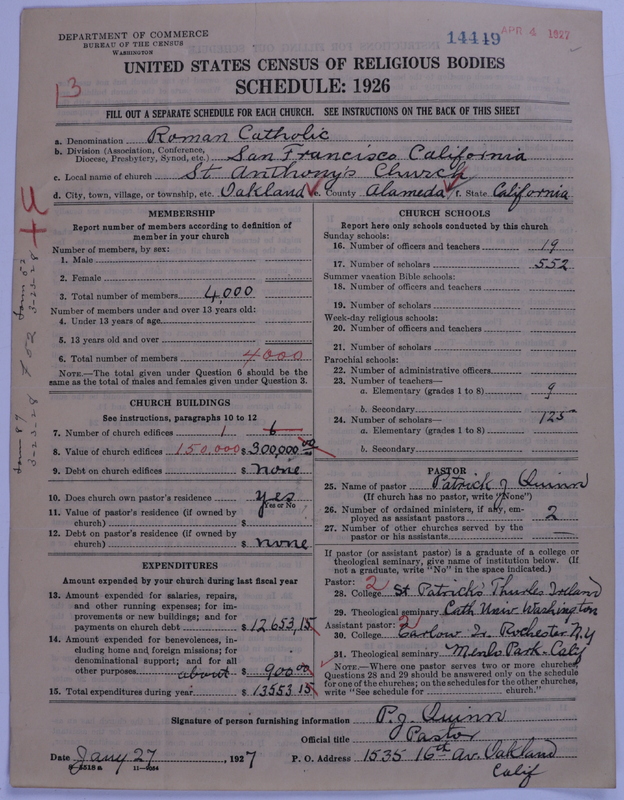 DEPARTMENT OF COMMERCE
BUREAU OF THE CENSUS
WASHINGTON
14419
APR 4 1927
UNITED STATES CENSUS OF RELIGIOUS BODIES
SCHEDULE: 1926
13
FILL OUT A SEPARATE SCHEDULE FOR EACH CHURCH. SEE INSTRUCTIONS ON THE BACK OF THIS SHEET
a. Denomination Roman Catholic
b. Division (Association, Conference, Diocese, Presbytery, Synod, etc.) San Francisco California
c. Local name of church St Anthony's Church
d. City, town, village, or township, etc. Oakland e. County Alameda f. State California
MEMBERSHIP
Report number of members according to definition of
member in your church
Number of members, by sex:
1. Male
2. Female
3. Total number of members 4,000
Number of members under and over 13 years old:
4. Under 13 years of age
5. 13 years old and over
6. Total number of members 4000
NOTE.—The total given under Question 6 should be
the same as the total of males and females given under Question 3.
CHURCH BUILDINGS
See instructions, paragraphs 10 to 12
7. Number of church edifices 1 6
8. Value of church edifices 150,000 $ 300,000 00
9. Debt on church edifices $ none
10. Does church own pastor's residence yes
Yes or No
11. Value of pastor's residence (if owned by
church) $
12. Debt on pastor's residence (if owned by
church) $ none
EXPENDITURES
Amount expended by your church during last fiscal year
13. Amount expended for salaries, repairs,
and other running expenses; for im-
provements or new buildings; and for
payments on church debt $ 12653.15
14. Amount expended for benevolences, in-
cluding home and foreign missions; for
denominational support; and for all
other purposes about $ 900 00
15. Total expenditures during year $ 13553.15
CHURCH SCHOOLS
Report here only schools conducted by this church
Sunday schools:
16. Number of officers and teachers 19
17. Number of scholars 552
Summer vacation Bible schools:
18. Number of officers and teachers
19. Number of scholars
Week-day religious schools:
20. Number of officers and teachers
21. Number of scholars
Parochial schools:
22. Number of administrative officers
23. Number of teachers—
a. Elementary (grades 1 to 8) 9
b. Secondary
24. Number of scholars—
a. Elementary (grades 1 to 8) 125
b. Secondary
PASTOR
25. Name of pastor Patrick J Quinn
(If church has no pastor, write "None")
26. Number of ordained ministers, if any, em-
ployed as assistant pastors 2
27. Number of other churches served by the
pastor or his assistants —
If pastor (or assistant pastor) is a graduate of a college or
theological seminary, give name of institution below. (If
not a graduate, write "No" in the space indicated.)
Pastor: 2
28. College St Patricks Thurles Ireland
29. Theological seminary Cath Univ Washington
Assistant pastor: 2
30. College Carlow Ir. Rochester N.Y
31. Theological seminary Menlo Park. Calif
NOTE.—Where one pastor serves two or more churches,
Questions 28 and 29 should be answered only on the schedule
for one of the churches; on the schedules for the other churches,
write "See schedule for church."
Signature of person furnishing information P. J. Quinn
Official title Pastor
Date Jany 27, 1927 P. O. Address 1535 16th Av. Oakland
Calif
11—9054